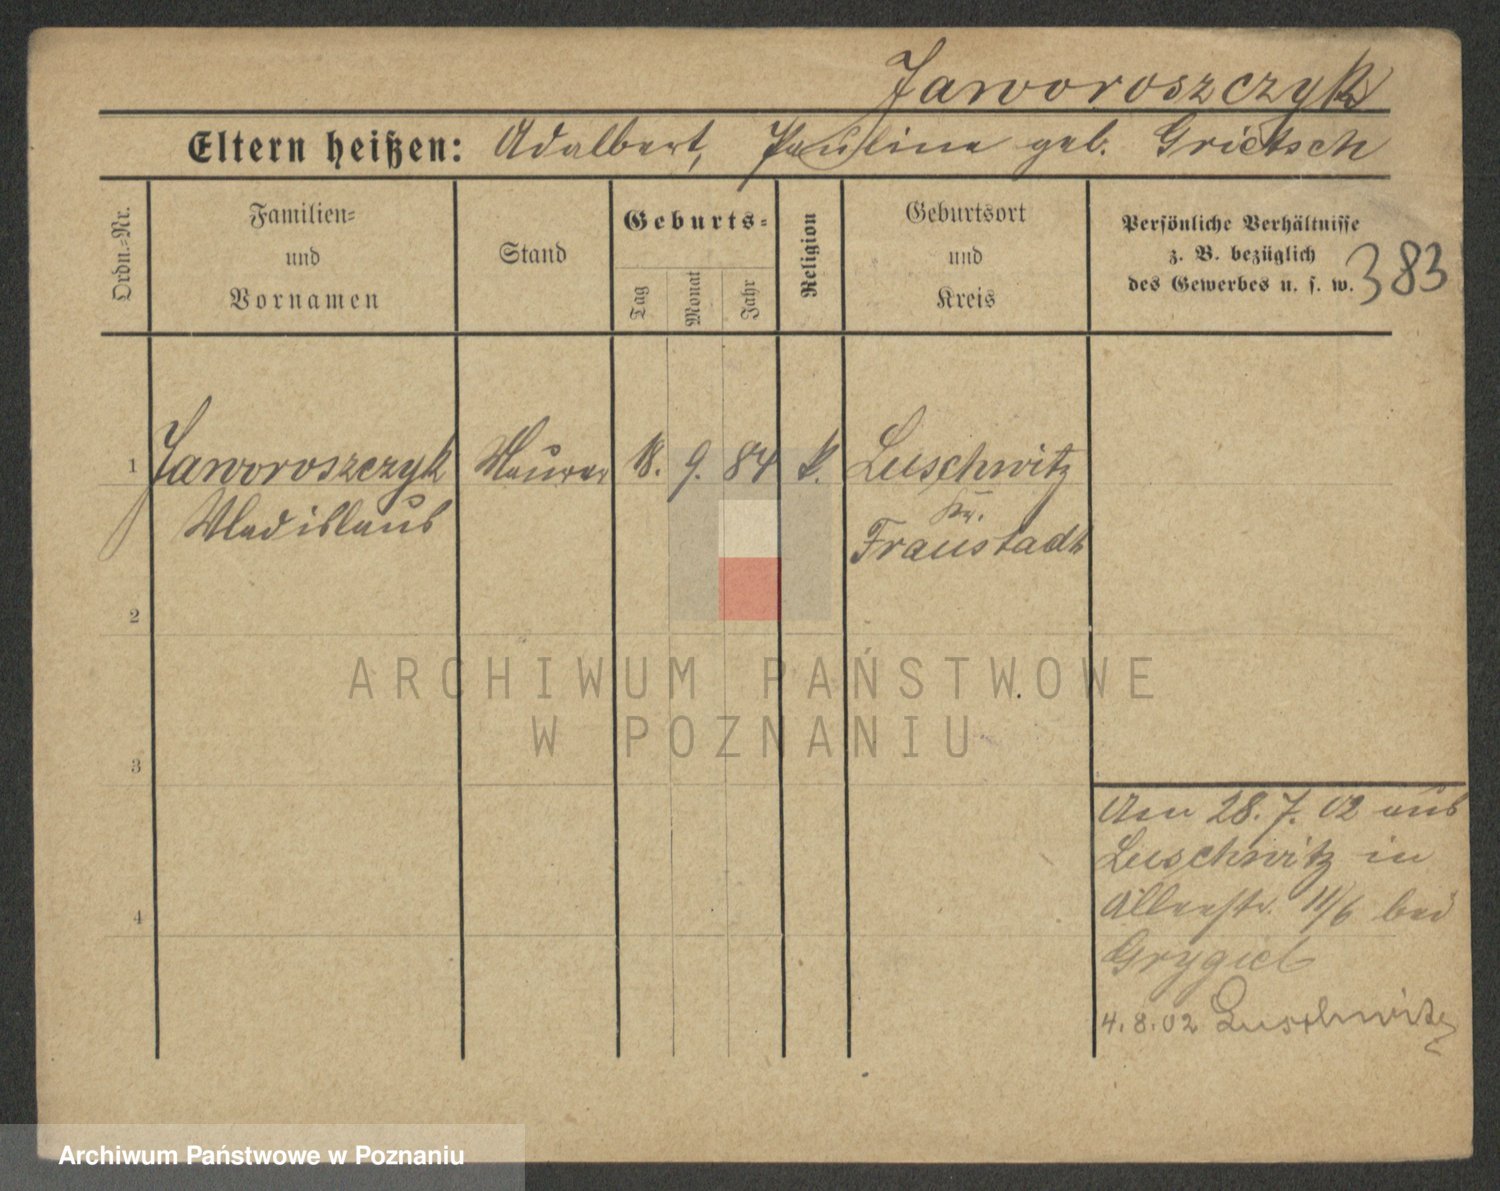 Jaworoszczyk
Eltern heißen: Adalbert, Pauline geb. Grietsch
Ordn.=Nr.
Familien=
und
Vornamen
Stand
Geburts=
Tag
Monat
Jahr
Religion
Geburtsort
und
Kreis
Persönliche Verhältnisse
z. B. bezüglich
des Gewerbes u. s. w.
383
1 Jaworoszczyk Maurer 18. 9. 84 k. Luschwitz
Wladislaus Kr.
Fraustadt
2
ARCHIWUM PAŃSTWOWE
W POZNANIU
3
Am 28. 7. 02 aus
Luschwitz in
11/6 bei
Grygiel
4
4. 8. 02 Luschwitz
Archiwum Państwowe w Poznaniu